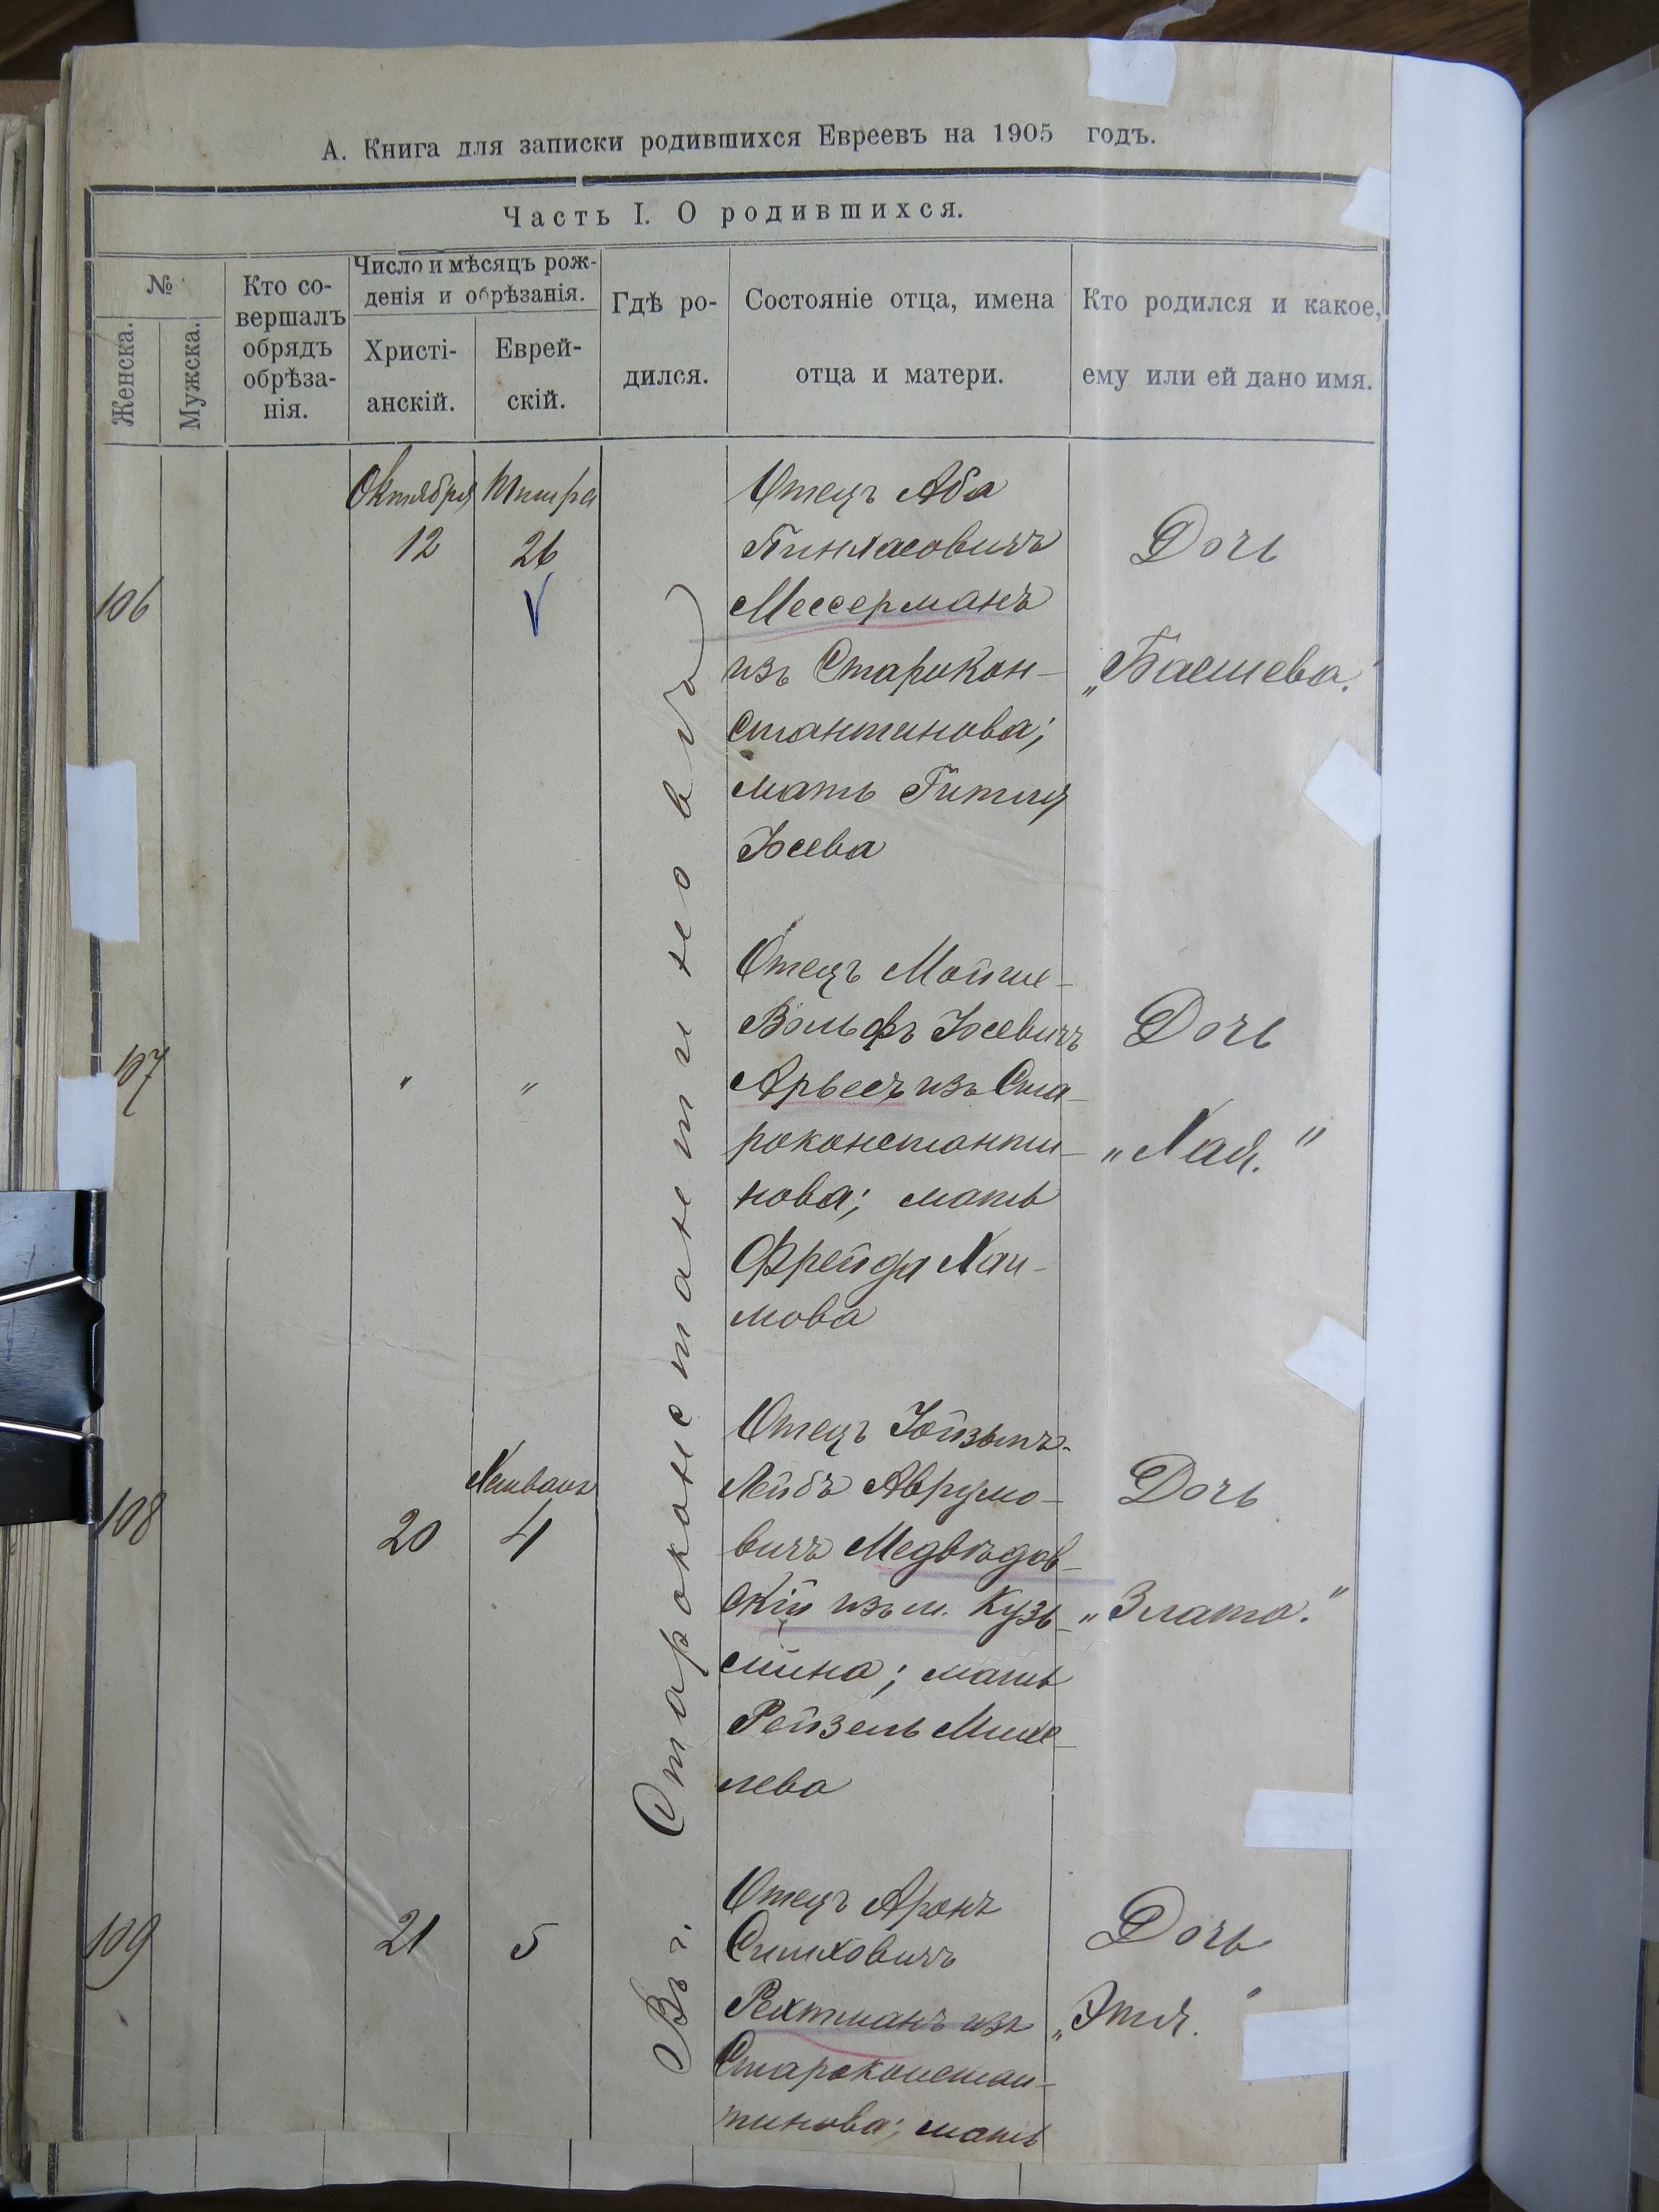 А. Книга для записки родившихся Евреевъ на 1905 годъ.
Часть I. О родившихся.
№
Женска.
Мужска.
Кто со-
вершалъ
обрядъ
обрѣза-
нія.
Число и мѣсяцъ рож-
денія и обрѣзанія.
Христі-
анскій.
Еврей-
скій.
Гдѣ ро-
дился.
Состояніе отца, имена
отца и матери.
Кто родился и какое,
ему или ей дано имя.
Въ г. Староконстантиновѣ
106
Октября
12
Тишра
26
Отецъ Аба
Пинхасовичъ
Мессерманъ
изъ Старокон-
стантинова;
мать Гитля
Іосева
Дочь
„Басшева."
107
"
"
Отецъ Мойше-
Вольфъ Іосевичъ
Арьевъ изъ Ста-
роконстанти-
нова; мать
Фрейда Хаи-
мова
Дочь
„Хая."
108
20
Хешванъ
4
Отецъ Іойзыпъ-
Лейбъ Аврумо-
вичъ Медвѣдов-
скій изъ м. Кузь-
мина; мать
Рейзель Михе-
лева
Дочь
„Злата."
109
21
5
Отецъ Аронъ
Симховичъ
Рехтманъ изъ
Староконстан-
тинова; мать
Дочь
„Этя."